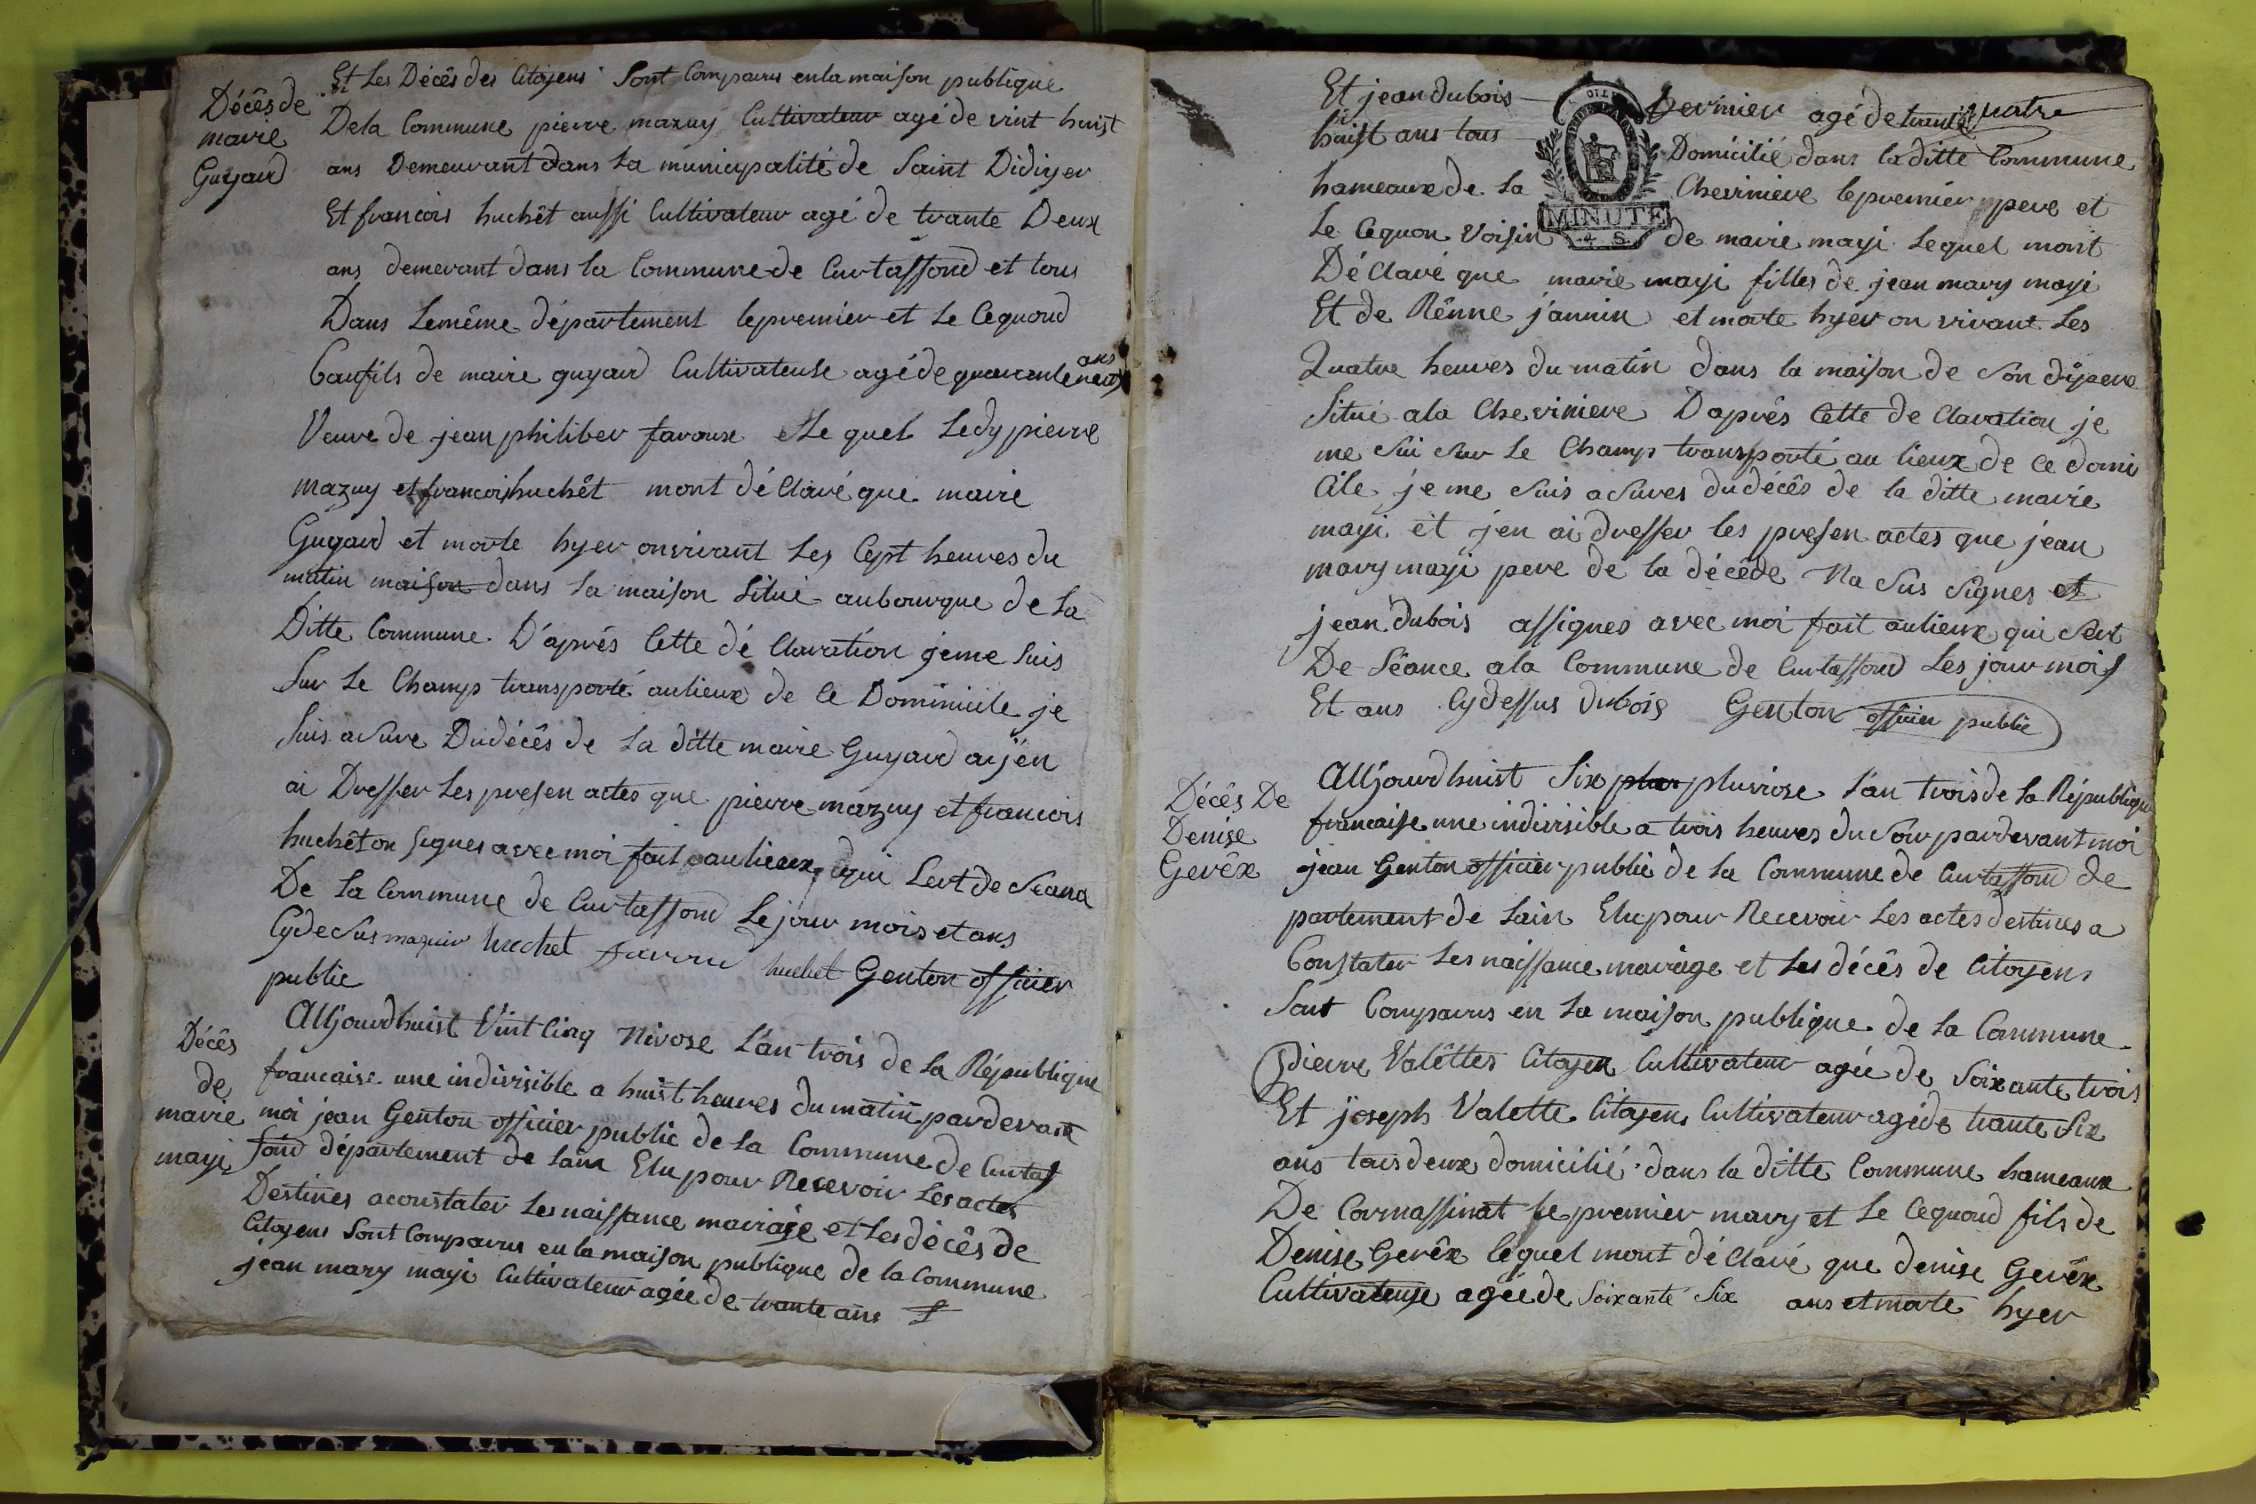 Décês de
marie
Guyard
Et Les Décês des Citoyens Sont Comparus en la maison publique
De la Commune pierre mazuy Cultivateur agé de vint huist
ans Demeurant dans la municipalité de Saint Didiyer
Et francois huchêt aussi Cultivateur agé de trante Deux
ans demerant dans la Commune de Curtaffond et tous
Dans Lemême département lepremier et Le Cequond
baufils de marie guyard Cultivateuse agé de quarante neuf ans
Veuve de jean philiber favoux Le quel Ledy pierre
mazuy et francois huchêt mont déClaré que marie
Guyard et morte hyer onvivant Les Cept heures du
matin maison dans la maison Situé aubourque de La
Ditte Commune D'aprés Cette dé Claration jeme Suis
Sur Le Champ transporté aulieux de Ce Dominicile je
Suis asure Dudécês de La ditte marie Guyard aijén
ai Dresser Les presen actes que pierre mazuy et francois
huchêt on Signes avec moi fait aulieux qui Sert de Séana
De La Commune de Curtaffond Le jour mois et ans
Cydesus mazuir huchet huchet Genton officier
public
Décês
de
marie
mayi
AUjourdhuist Vint Cinq Nivose L'an trois de La République
francaise une indivisible a huist heures du matin pardevant
moi jean Genton officier public de La Commune de Curtaf
fond département de Lain Elu pour Recevoir Les actes
Destines aconstater Les naissance mariage et Les décês de
Citoyens Sont Comparus en la maison publique de la Commune
jean mary mayi Cultivateur agée de trante ans
Et jean dubois Vernier agé de trante quatre
huist ans tous Domicilié dans la ditte Commune
hameaux de La Cheviniere lepremier pere et
Le Cequon Voisin de marie mayi Lequel mont
MINUTE
4 S
DéClaré que marie mayi filles de jean mary mayi
Et de Rênne jannin et morte hyer on vivant Les
Quatre heures du matin dans la maison de Son dipere
Situé ala Cheviniere D'aprês Cette de Claration je
me Sui Sur Le Champ transporté au lieux de Ce domi
Cile je me Suis aSures dudécês de la ditte marie
mayi et j'en ai dresser les presen actes que jean
mary mayi pere de la décêde Na Sûs Signes et
jean dubois assignes avec moi fait aulieux qui Sert
De Séance ala Commune de Curtaffond Les jour mois
Et ans Cydessus Dubois Genton officier public
Décês De
Denise
Gerêx
AUjourdhuist Six pluviose L'an trois de La République
francaise une indivisible a trois heures du Soir pardevant moi
jean Genton officier public de La Commune de Curtaffond de
partement de Lain Elu pour Recevoir Les actes destines a
Constater Les naissance mariage et Les décês de Citoyens
Sont Comparus en La maison publique de La Commune
pierre Valêttes Citoyen Cultivateur agée de Soixante trois
Et joseph Valette Citoyens Cultivateur agéde trante Six
ans tous deux domicilié dans la ditte Commune hameaux
De Cormassinat Le premier mary et Le Cequond fils de
Denise Gerêx lequel mont déClaré que denise Gerêx
Cultivateuse agéede Soixante Six ans et morte hyer